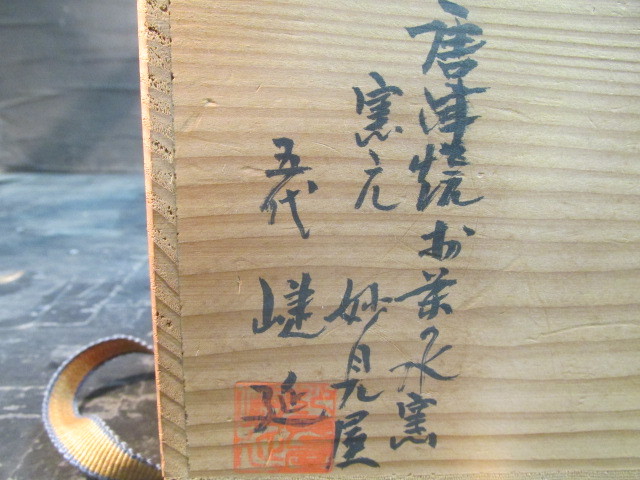 唐津焼お茶の水窯
窯元 妙見屋
五代 㠀延